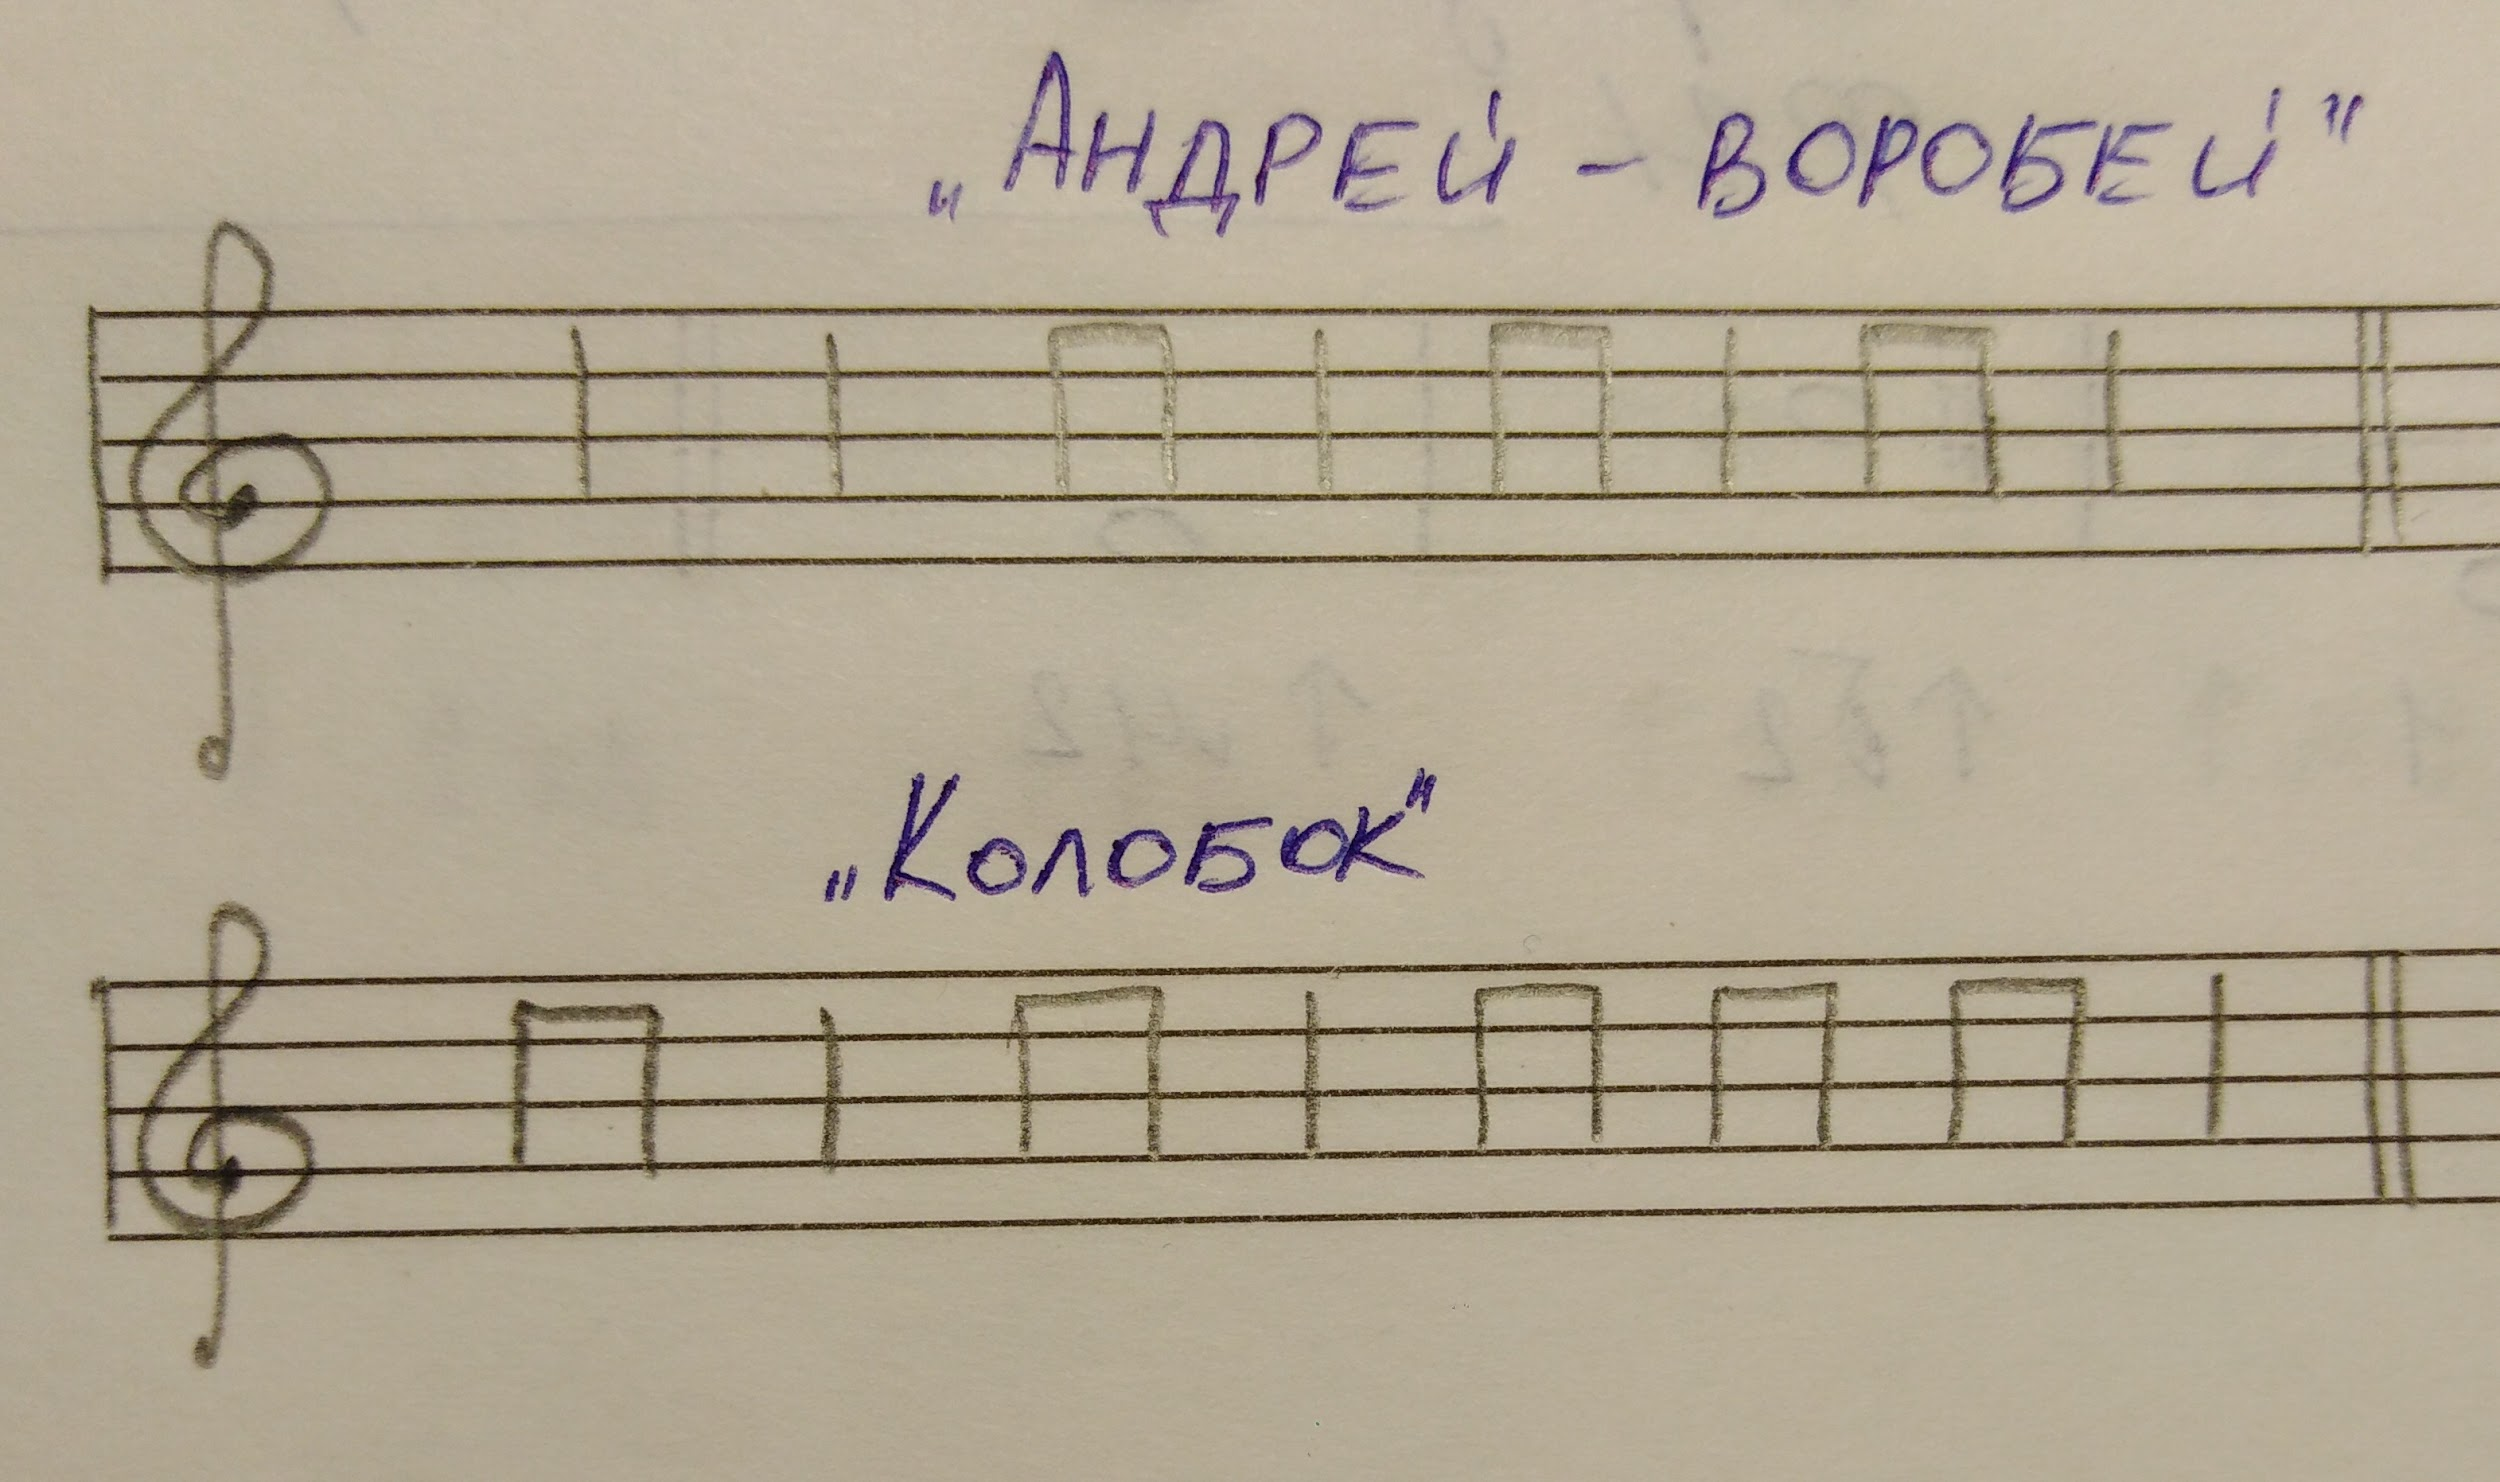 „Андрей - воробей"
„Колобок"